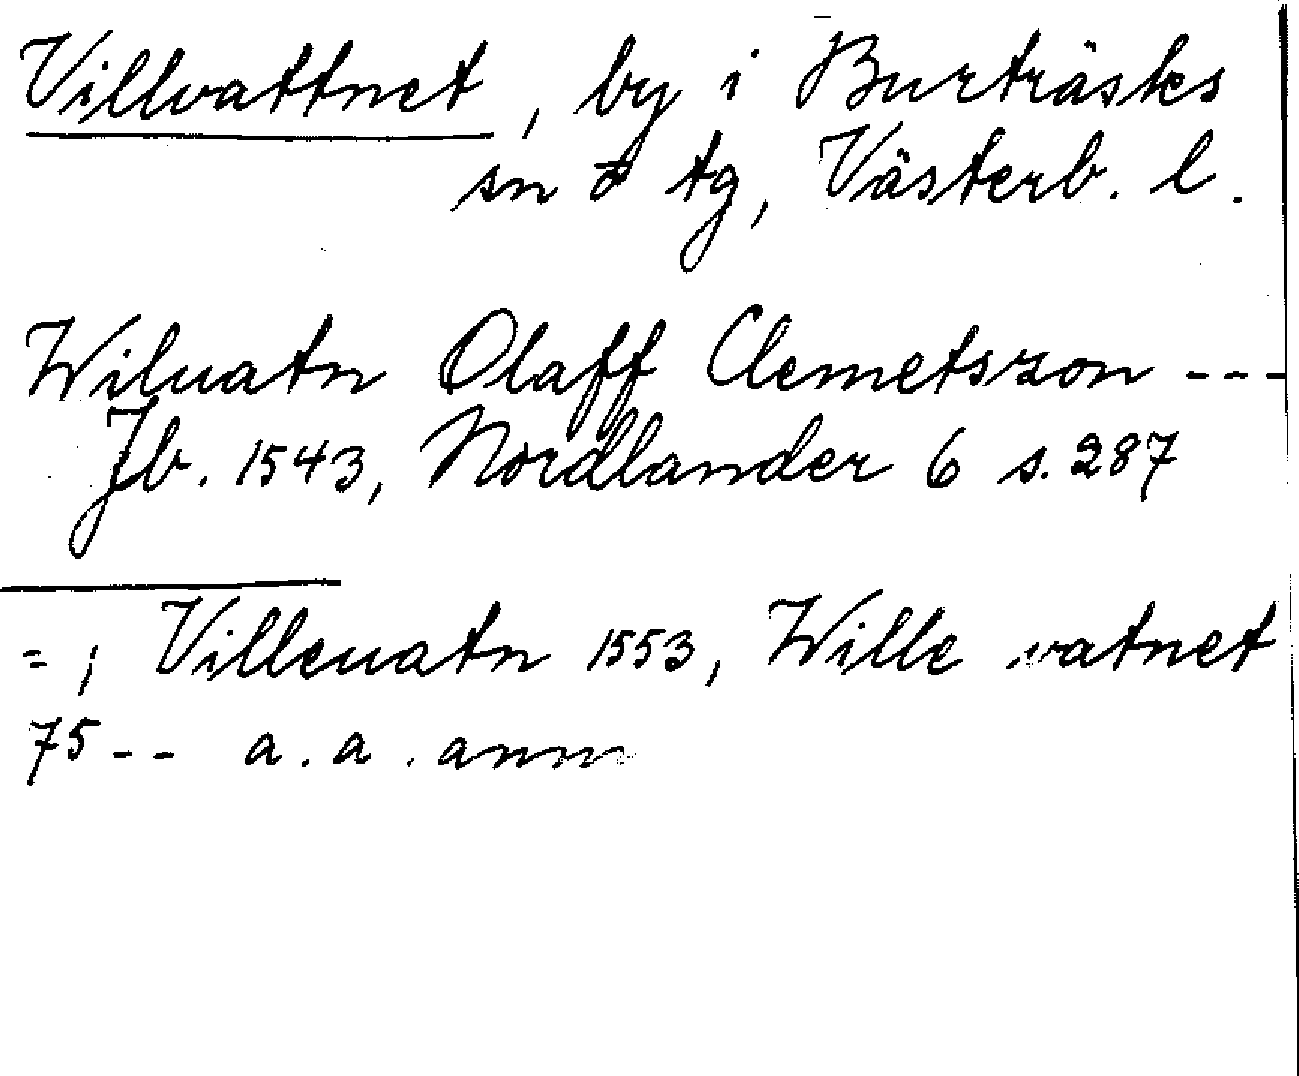 Villvattnet, by i Burträsks
sn o tg, Västerb. l.
Wiluatn Olaff Clemetszon ---
Jb. 1543, Nordlander 6 s. 287
= ; Villeuatn 1553, Wille vatnet
75 -- a. a. anm